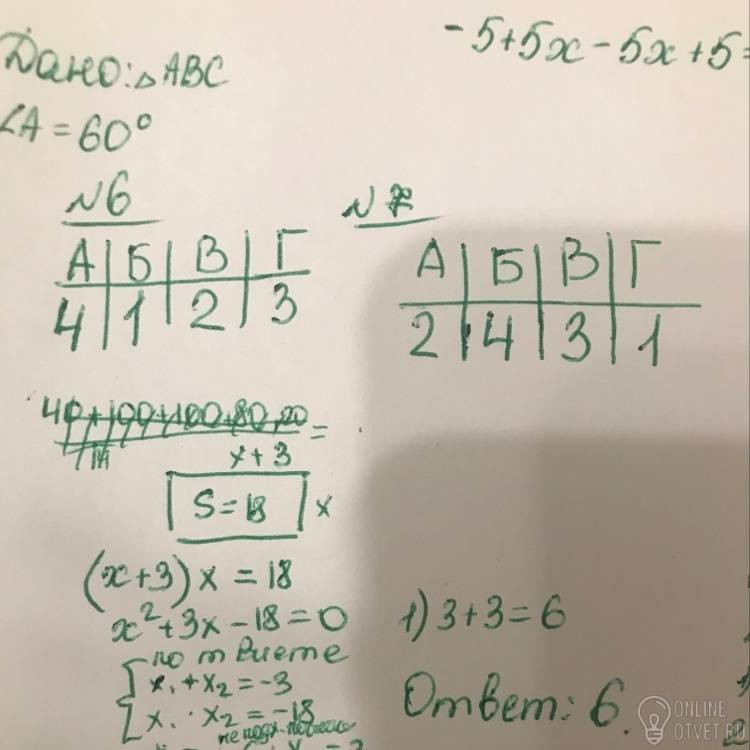 Дано: △ABC
∠A = 60°
-5+5x-5x+5=
№6
А | Б | В | Г
4 | 1 | 2 | 3
№7
А | Б | В | Г
2 | 4 | 3 | 1
x+3
S=18 x
(x+3)x=18
x²+3x-18=0
по т Виета
x₁+x₂=-3
x₁·x₂=-18
1) 3+3=6
Ответ: 6.
ONLINE
OTVET.RU